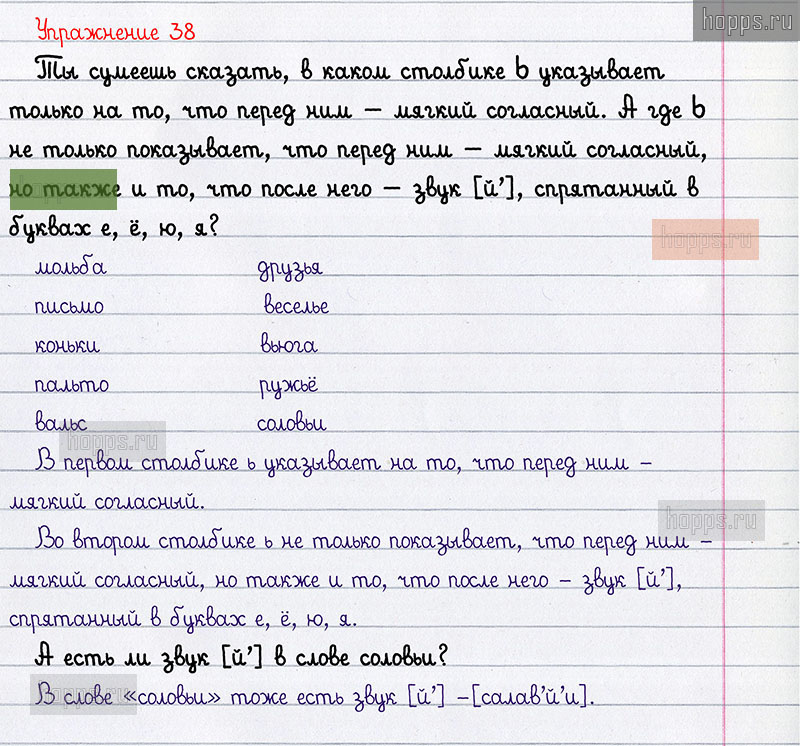 hopps.ru
Упражнение 38
Ты сумеешь сказать, в каком столбике ь указывает
только на то, что перед ним – мягкий согласный. А где ь
не только показывает, что перед ним – мягкий согласный,
но также и то, что после него – звук [й’], спрятанный в
буквах е, ё, ю, я?
hopps.ru
мольба друзья
письмо веселье
коньки вьюга
пальто ружьё
вальс соловьи
hopps.ru
В первом столбике ь указывает на то, что перед ним –
мягкий согласный.
hopps.ru
Во втором столбике ь не только показывает, что перед ним –
мягкий согласный, но также и то, что после него – звук [й’],
спрятанный в буквах е, ё, ю, я.
А есть ли звук [й’] в слове соловьи?
В слове «соловьи» тоже есть звук [й’] –[салав’й’и].